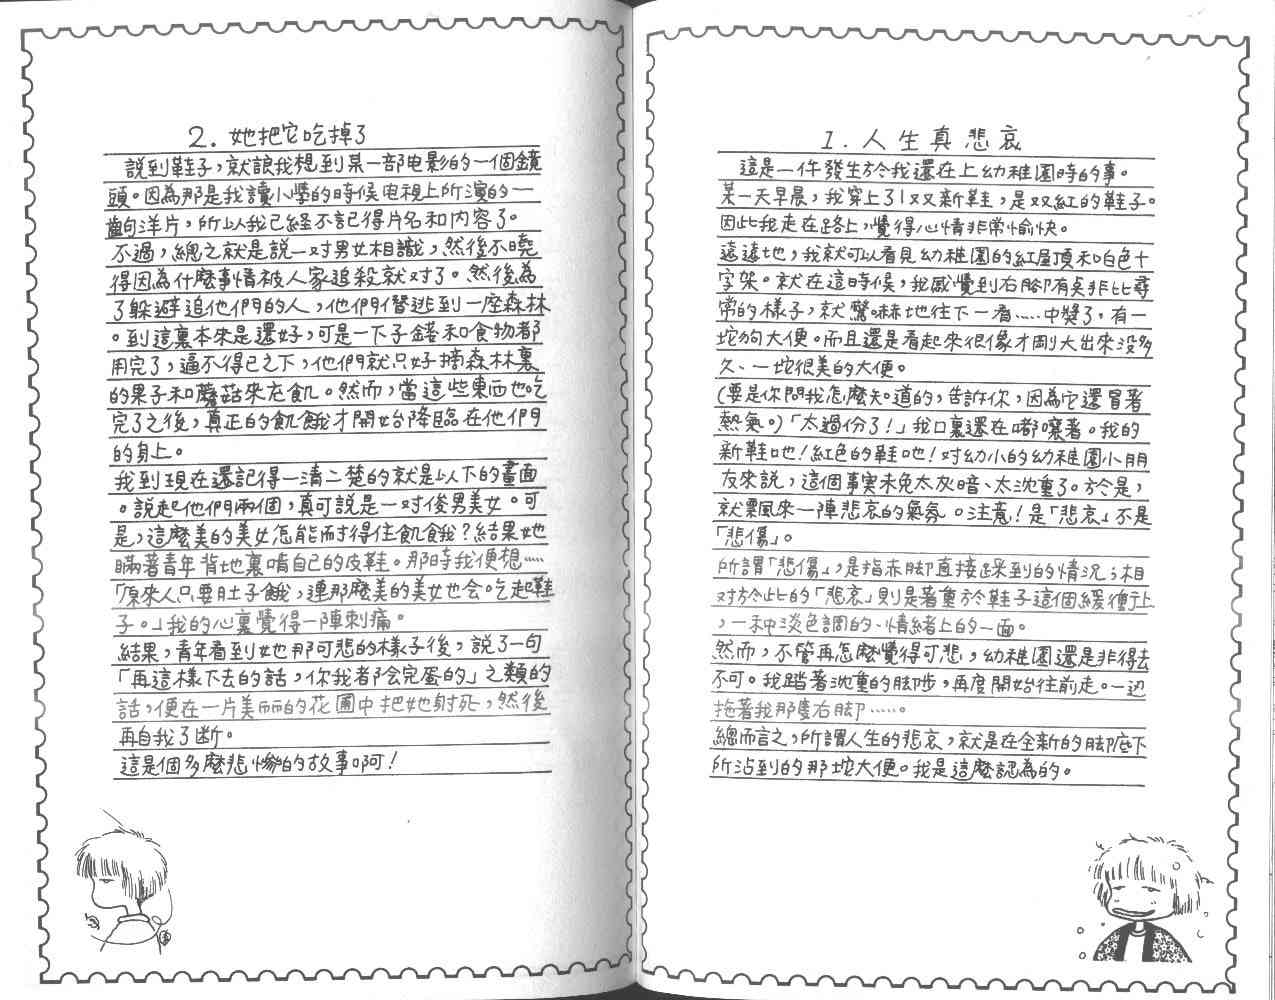 1. 人生真悲哀
這是一件發生於我還在上幼稚園時的事。
某一天早晨，我穿上了1双新鞋，是双紅的鞋子。
因此我走在路上，覺得心情非常愉快。
遠遠地，我就可以看見幼稚園的紅屋頂和白色十
字架。就在這時候，我感覺到右腳有臭非比尋
常的樣子，就驚嚇地往下一看……中獎了，有一
坨狗大便。而且還是看起來很像才剛大出來沒多
久、一坨很美的大便。
(要是你問我怎麼知道的，告訴你，因為它還冒著
熱氣。)「太過份了!」我口裏還在嘟嚷著。我的
新鞋吔!紅色的鞋吔!对幼小的幼稚園小朋
友來說，這個事実未免太灰暗、太沈重了。於是，
就飄來一陣悲哀的氣氛。注意!是「悲哀」不是
「悲傷」。
所謂「悲傷」，是指赤腳直接踩到的情況；相
对於此的「悲哀」則是著重於鞋子這個緩衝上
，一种淡色調的、情緒上的一面。
然而，不管再怎麼覺得可悲，幼稚園還是非得去
不可。我踏著沈重的脚步，再度開始往前走。一边
拖著我那隻右腳……。
總而言之，所謂人生的悲哀，就是在全新的腳底下
所沾到的那坨大便。我是這麼認為的。
2. 她把它吃掉了
說到鞋子，就讓我想到某一部电影的一個鏡
頭。因為那是我讀小學的時候电視上所演的一
齣洋片，所以我已経不記得片名和内容了。
不過，總之就是説一对男女相識，然後不曉
得因為什麼事情被人家追殺就对了。然後為
了躲避追他們的人，他們僭逃到一座森林
。到這裏本來是還好，可是一下子錢和食物都
用完了，逼不得已之下，他們就只好摘森林裏
的果子和蘑菇來充飢。然而，當這些東西也吃
完了之後，真正的飢餓才開始降臨在他們
的身上。
我到現在還記得一清二楚的就是以下的畫面
。說起他們兩個，真可說是一对俊男美女。可
是，這麼美的美女怎能耐得住飢餓?結果她
瞞著青年背地裏啃自己的皮鞋。那時我便想……
「原來人只要肚子餓，連那麼美的美女也会吃起鞋
子。」我的心裏覺得一陣刺痛。
結果，青年看到她那可悲的樣子後，說了一句
「再這樣下去的話，你我都会完蛋的」之類的
話，便在一片美麗的花圃中把她射死，然後
再自我了断。
這是個多麼悲慘的故事啊!